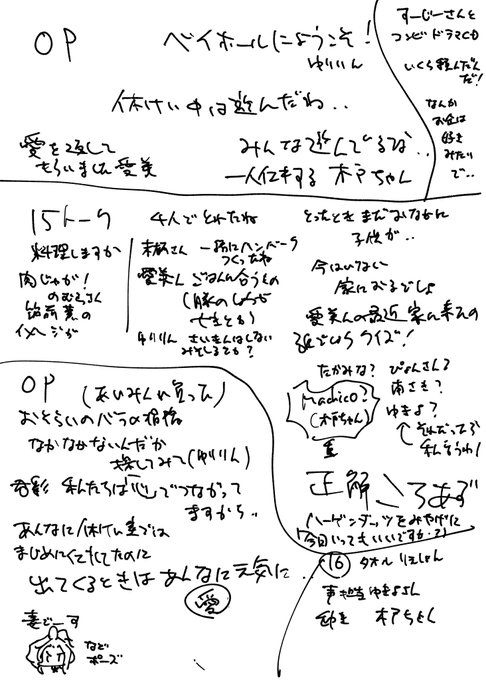 OP
ベイホールにようこそ!
ゆりりん
休けい中は遊んだね..
愛を返して
もらいました 愛美
みんな遊んでるな..
一人仕事する 木戸ちゃん
すーじーさんと
コンビ ドラマCD
いくら積んだんだ!
なんか
お金は
好き
みたい
で..
15トーク
料理しますか
肉じゃが!
のむさん
イメージが
4人でとれたね
一緒にハンバーグ
つくったね
愛美ん ごはんに合うもの
(豚のしょうが
やきとる)
ゆりりん さいきんはしない
とったとき まだおなかに
子供が..
今はいない
家におるでしょ
愛美んの最近 家に来たの
たかみな?
ぴょんさん?
南さき?
ゆきよ?
Machico?
(木戸ちゃん)
↑それだったら
私をうわ!
正解 ころあず
ハーゲンダッツをみやげに
「今日いってもいいですか?」
OP
(あいみんに言って)
おそろいのバラの指輪
なかなかないんだか
探してみて(ゆりりん)
私たちは「心」でつながって
ますから..
あんなに休けい中では
まじめにしてたのに
出てくるときはあんなに元気に..
愛
妻でーす
など
ポーズ
16
タオル りえしょん
声担当 ゆきよさん
木戸ちゃん